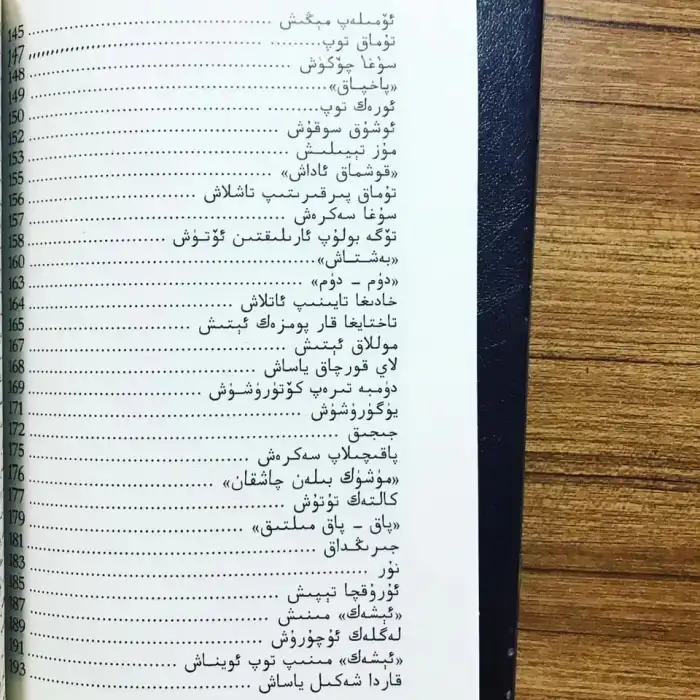 ئۆمىلەپ مېڭىش 145
تۇماق توپ 147
سۇغا چۆكۈش 148
«پاخپاق» 149
ئورەك توپ 150
ئوشۇق سوقۇش 152
مۇز تېيىلىش 153
«قوشماق ئاداش» 155
تۇماق پىرقىرىتىپ تاشلاش 156
سۇغا سەكرەش 157
تۆگە بولۇپ ئارىلىقتىن ئۆتۈش 158
«بەشتاش» 160
«دۈم - دۈم» 163
خادىغا تايىنىپ ئاتلاش 164
تاختايغا قار پومزەك ئېتىش 165
موللاق ئېتىش 167
لاي قورچاق ياساش 168
دۈمبە تىرەپ كۆتۈرۈشۈش 169
يۈگۈرۈشۈش 171
جىجىق 172
پاقىچىلاپ سەكرەش 175
«مۈشۈك بىلەن چاشقان» 176
كالتەك تۇتۇش 177
«پاق - پاق مىلتىق» 179
جىرىڭداق 181
نۇر 183
ئۇرۇقچا تېپىش 185
«ئېشەك» مىنىش 187
لەگلەك ئۇچۇرۇش 189
«ئېشەك» مىنىپ توپ ئويناش 191
قاردا شەكىل ياساش 193